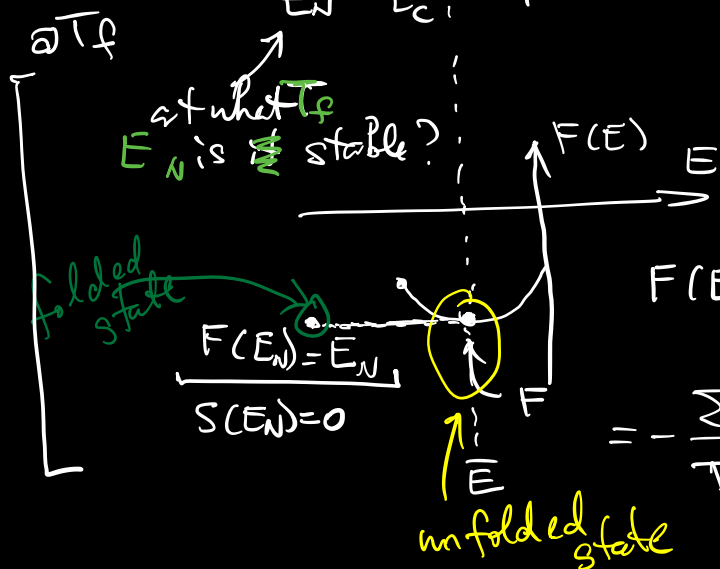 @Tf
EN EC
at what Tf
EN is stable?
F(E)
E
folded
state
F(E
F(EN)=EN
S(EN)=0
F
= - Σ
E̅
unfolded
state